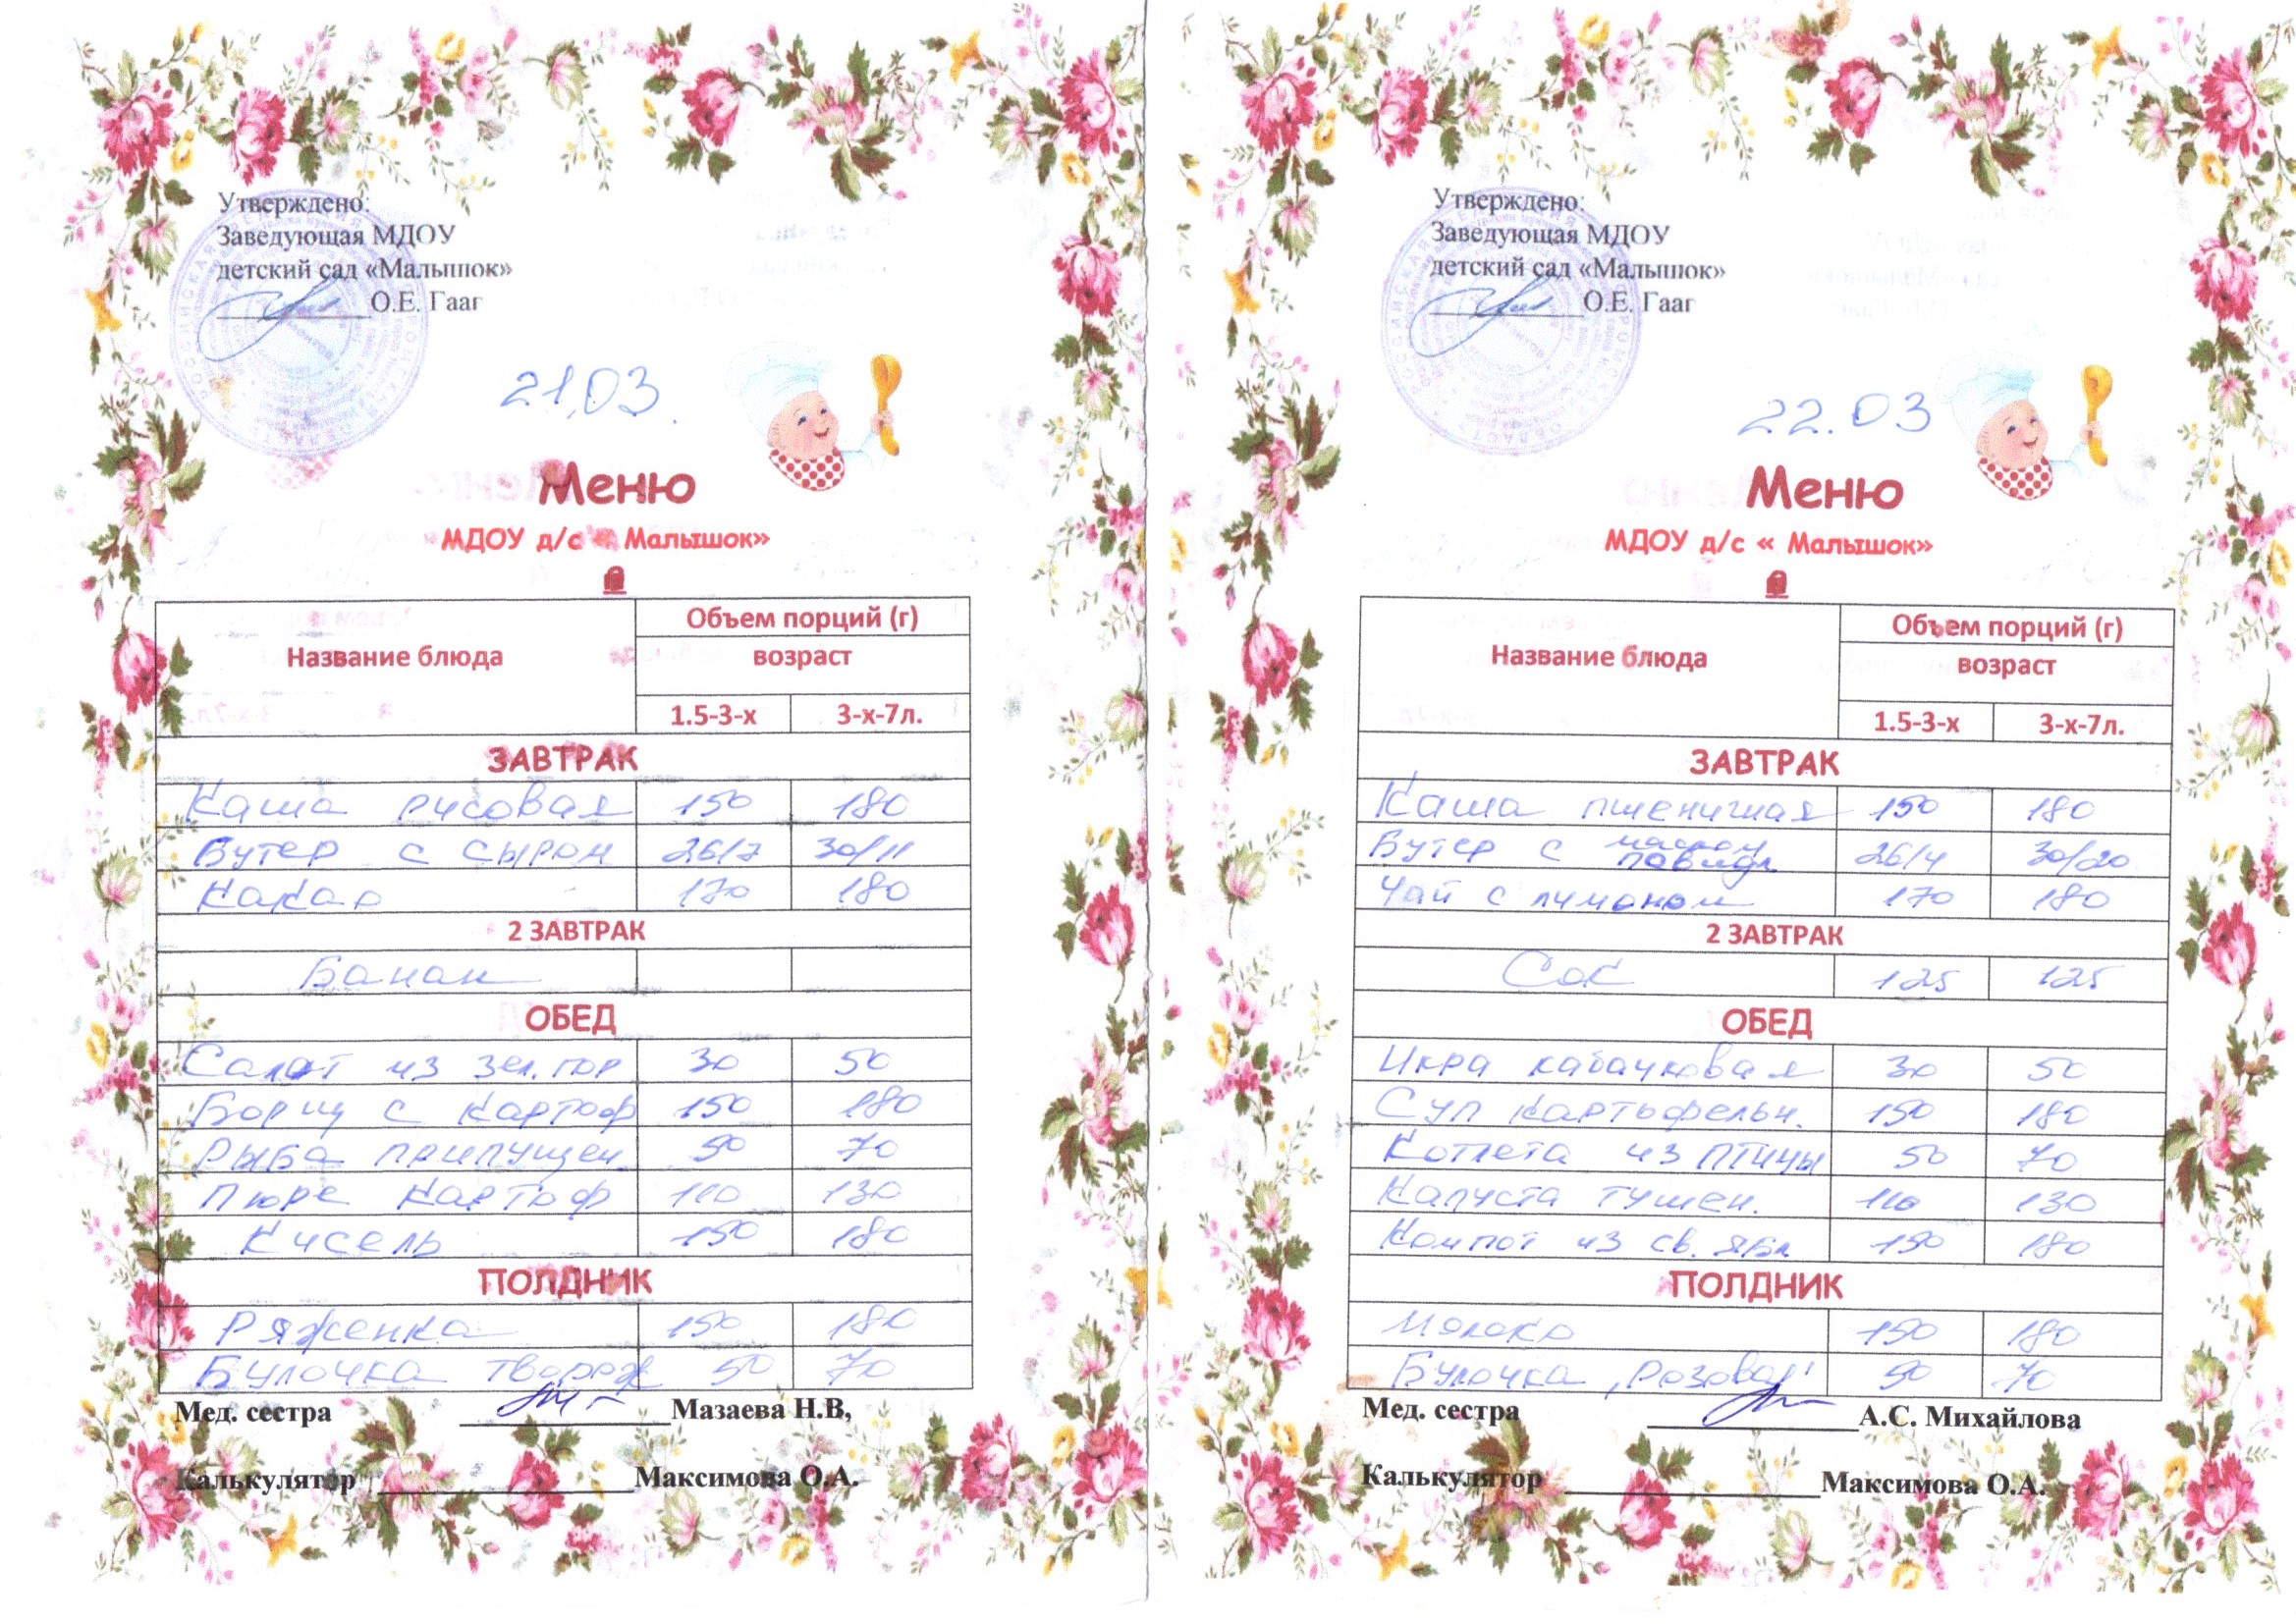 Утверждено:
Заведующая МДОУ
детский сад «Малышок»
О.Е. Гааг
21.03.
Меню
МДОУ д/с « Малышок»
Название блюда
Объем порций (г)
возраст
1.5-3-х 3-х-7л.
ЗАВТРАК
Каша рисовая 150 180
Бутер с сыром 26/7 30/11
Какао 170 180
2 ЗАВТРАК
Банан
ОБЕД
Салат из зел. гор 30 50
Борщ с картоф 150 180
Рыба припущен 50 70
Пюре картоф 110 130
Кисель 150 180
ПОЛДНИК
Ряженка 150 180
Булочка творож 50 70
Мед. сестра Мазаева Н.В,
Калькулятор Максимова О.А.
Утверждено:
Заведующая МДОУ
детский сад «Малышок»
О.Е. Гааг
22.03
Меню
МДОУ д/с « Малышок»
Название блюда
Объем порций (г)
возраст
1.5-3-х 3-х-7л.
ЗАВТРАК
Каша пшеничная 150 180
Бутер с маслом повидл 26/4 30/20
Чай с лимоном 170 180
2 ЗАВТРАК
Сок 125 125
ОБЕД
Икра кабачковая 30 50
Суп картофельн. 150 180
Котлета из птицы 50 70
Капуста тушен. 110 130
Компот из св. ябл 150 180
ПОЛДНИК
Молоко 150 180
Булочка „розовая" 50 70
Мед. сестра А.С. Михайлова
Калькулятор Максимова О.А.